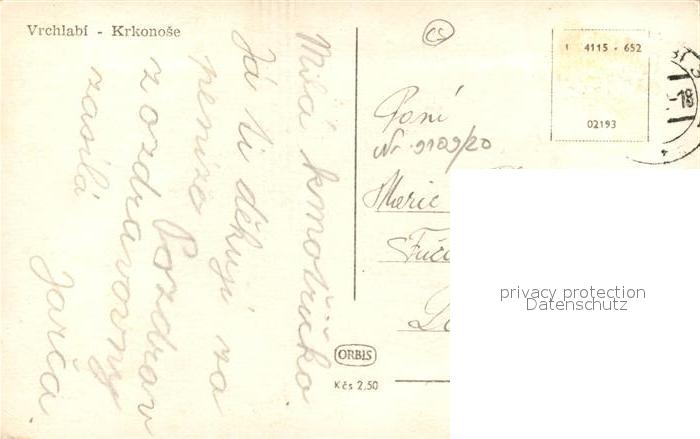 Vrchlabí - Krkonoše
Milá kmotřičko
Já ti děkuji za
peníze Pozdrav
z ozdravovny
zasílá
Jarča
CS
1 4115 - 652
02193
18
Paní
Nr 9109/20
Marie
ORBIS
Kčs 2,50
privacy protection
Datenschutz